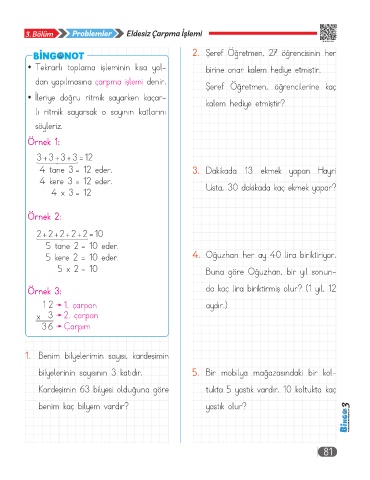 3. Bölüm Problemler Eldesiz Çarpma İşlemi
BİNGONOT
• Tekrarlı toplama işleminin kısa yol-
dan yapılmasına çarpma işlemi denir.
• İleriye doğru ritmik sayarken kaçar-
lı ritmik sayarsak o sayının katlarını
söyleriz.
Örnek 1:
3 + 3 + 3 + 3 = 12
4 tane 3 = 12 eder.
4 kere 3 = 12 eder.
4 x 3 = 12
Örnek 2:
2 + 2 + 2 + 2 + 2 = 10
5 tane 2 = 10 eder.
5 kere 2 = 10 eder.
5 x 2 = 10
Örnek 3:
12 → 1. çarpan
x 3 → 2. çarpan
36 → Çarpım
1. Benim bilyelerimin sayısı, kardeşimin
bilyelerinin sayısının 3 katıdır.
Kardeşimin 63 bilyesi olduğuna göre
benim kaç bilyem vardır?
2. Şeref Öğretmen, 27 öğrencisinin her
birine onar kalem hediye etmiştir.
Şeref Öğretmen, öğrencilerine kaç
kalem hediye etmiştir?
3. Dakikada 13 ekmek yapan Hayri
Usta, 30 dakikada kaç ekmek yapar?
4. Oğuzhan her ay 40 lira biriktiriyor.
Buna göre Oğuzhan, bir yıl sonun-
da kaç lira biriktirmiş olur? (1 yıl, 12
aydır.)
5. Bir mobilya mağazasındaki bir kol-
tukta 5 yastık vardır. 10 koltukta kaç
yastık olur?
BİNGO 3
81